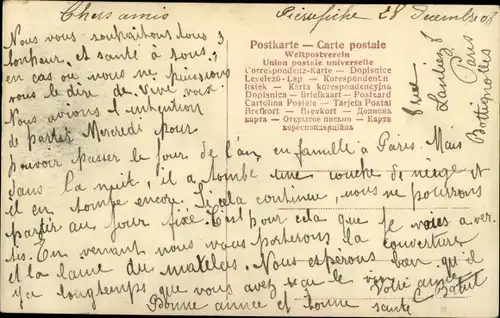 Chers amis
Pierrefiche 28 Decembre 08
Nous vous souhaitons tous
bonheur et santé à tous
en cas ou nous ne puissions
vous le dire de Vive voix
Nous avions l'intention
de partir Mercredi pour
pouvoir passer le jour de l'an en famille à Paris. Mais
dans la nuit, il a tombé une couche de neige et
il en tombe encore. Si cela continue, nous ne pourrons
partir au jour fixé. C'est pour cela que je vais aver
tis. En venant nous vous porterons la couverture
et la laine du matelas. Nous esperons bien qu'il
y a longtemps que vous avez le Votre amie
Bonne année et bonne santé C Batut
Postkarte – Carte postale
Weltpostverein
Union postale universelle
Correspondenz-Karte – Dopisnice
Levelező-Lap – Korespondent n
listek – Karta korespondencyjna
Dopisnica – Briefkaart – Postcard
Cartolina Postale – Tarjeta Postal
Brefkort – Brevkort – Дописна
карта – Открытое письмо – Карта
кореспонденційна
5 rue
Lantiez
Paris
Battignolles